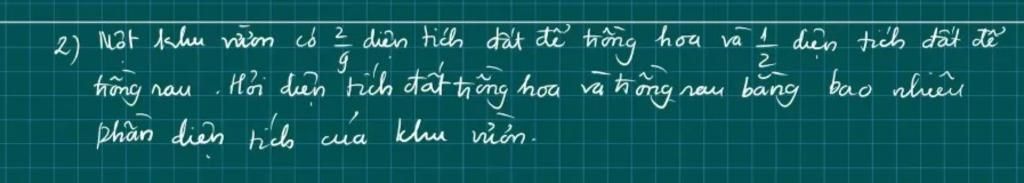 2) Một khu vườn có 2/9 diện tích đất để trồng hoa và 1/2 diện tích đất để
trồng rau. Hỏi diện tích đất trồng hoa và trồng rau bằng bao nhiêu
phần diện tích của khu vườn.